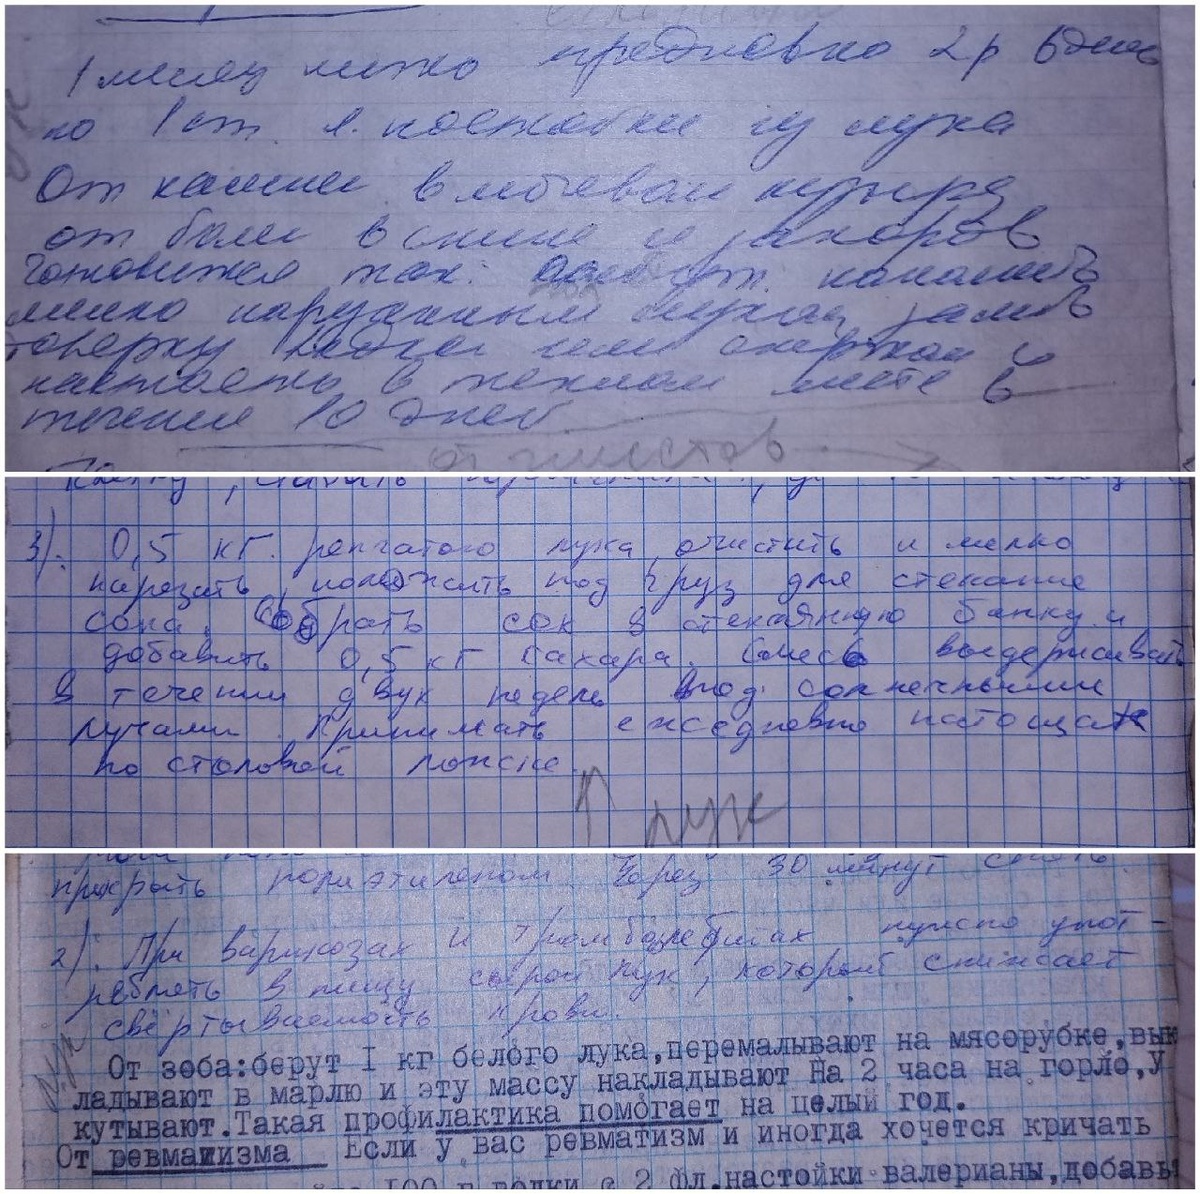 1 месяц можно ежедневно 2р в день
по 1 ст. л. настойки из лука
От камней в мочевом пузыре
от боли в спине и запоров
готовится так: ст. наполнить
мелко нарезанным луком, залить
доверху водкой или спиртом и
настоять в теплом месте в
течение 10 дней.
от глистов
3). 0,5 кг. репчатого лука очистить и мелко
нарезать, положить под груз для стекание
сока. Собрать сок в стеклянную банку и
добавить 0,5 кг сахара. Смесь выдерживать
в течении двух недель под солнечными
лучами. Принимать ежедневно натощак
по столовой ложке.
↑ лук
прикрыть полиэтиленом. Через 30 минут снять.
2). При варикозах и тромбофлебитах нужно упот-
реблять в пищу сырой лук, который снижает
свёртываемость крови.
лук
От зоба:берут I кг белого лука,перемалывают на мясорубке,вык
ладывают в марлю и эту массу накладывают на 2 часа на горло,у
кутывают.Такая профилактика помогает на целый год.
От ревматизма Если у вас ревматизм и иногда хочется кричать
100 г водки с 2 фл.настойки валерианы,добавь